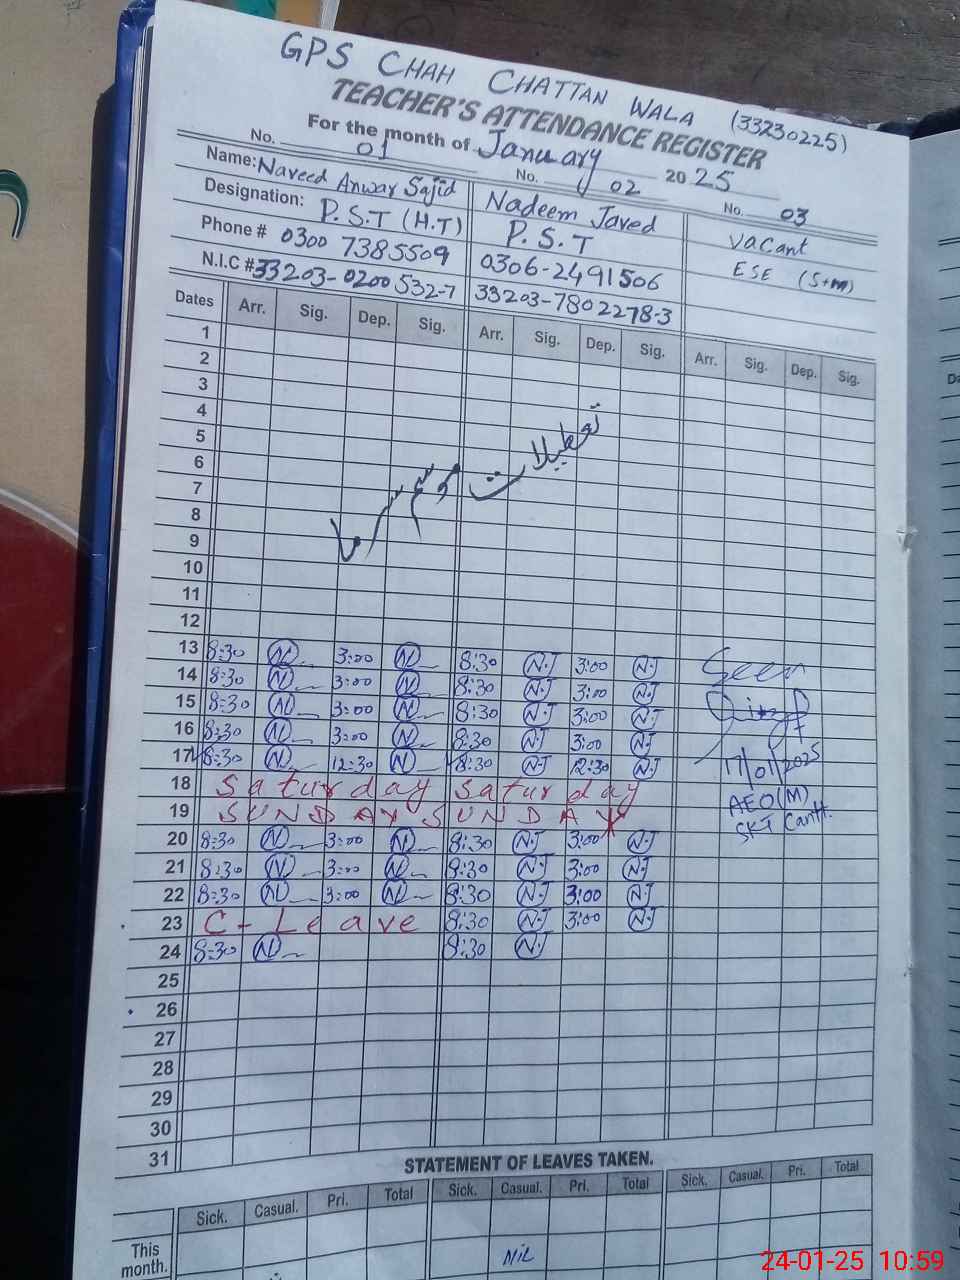 GPS CHAH CHATTAN WALA (33230225)
TEACHER'S ATTENDANCE REGISTER
For the month of January 2025
No. 01 No. 02 No. 03
Name: Naveed Anwar Sajid Nadeem Javed Vacant
Designation: P.S.T (H.T) P.S.T ESE (S+m)
Phone # 0300 7385509 0306-2491506
N.I.C # 33203-0200532-7 33203-7802278-3
Dates Arr. Sig. Dep. Sig. Arr. Sig. Dep. Sig. Arr. Sig. Dep. Sig.
1
2
3
4
5
6
7
8
9
10
11
12
تعطیلات موسم سرما
13 8:30 N 3:00 N 8:30 N.J 3:00 N.J Seen
14 8:30 N 3:00 N 8:30 N.J 3:00 N.J
15 8:30 N 3:00 N 8:30 N.J 3:00 N.J
16 8:30 N 3:00 N 8:30 N.J 3:00 N.J
17 8:30 N 12:30 N 8:30 N.J 12:30 N.J 17/01/2025
18 Saturday Saturday AEO(M)
19 SUNDAY SUNDAY SKT Cantt.
20 8:30 N 3:00 N 8:30 N.J 3:00 N.J
21 8:30 N 3:00 N 8:30 N.J 3:00 N.J
22 8:30 N 3:00 N 8:30 N.J 3:00 N.J
23 C-Leave 8:30 N.J 3:00 N.J
24 8:30 N 8:30 N.J
25
26
27
28
29
30
31
STATEMENT OF LEAVES TAKEN.
Sick. Casual. Pri. Total Sick. Casual. Pri. Total Sick. Casual. Pri. Total
This month. Nil
24-01-25 10:59